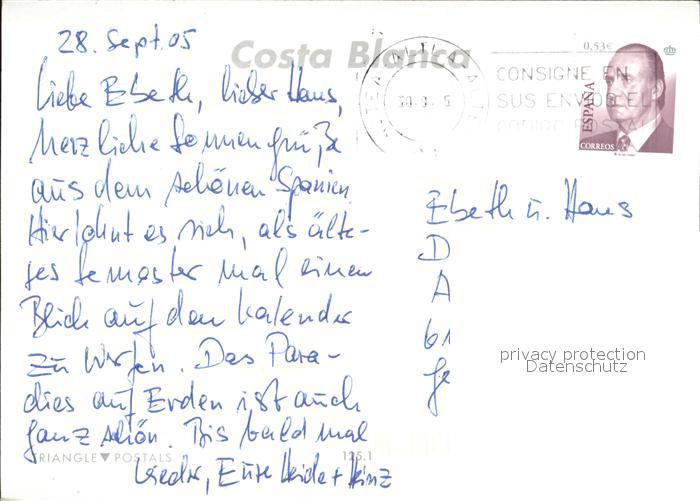 28. Sept. 05
Costa Blanca
Liebe Ebeth, lieber Hans,
herzliche Sonnengrüße
aus dem schönen Spanien.
Hier lohnt es sich, als älte-
res Semester mal einen
Blick auf den Kalender
zu werfen. Das Para-
dies auf Erden ist auch
ganz schön. Bis bald mal
wieder, Eure Heide + Heinz
TRIANGLE POSTALS
125.1
0,53€
ESPAÑA
CORREOS
CONSIGNE EN
SUS ENVIOS EL
CODIGO POSTAL
Ebeth u. Hans
D
A
61
Ge
privacy protection
Datenschutz